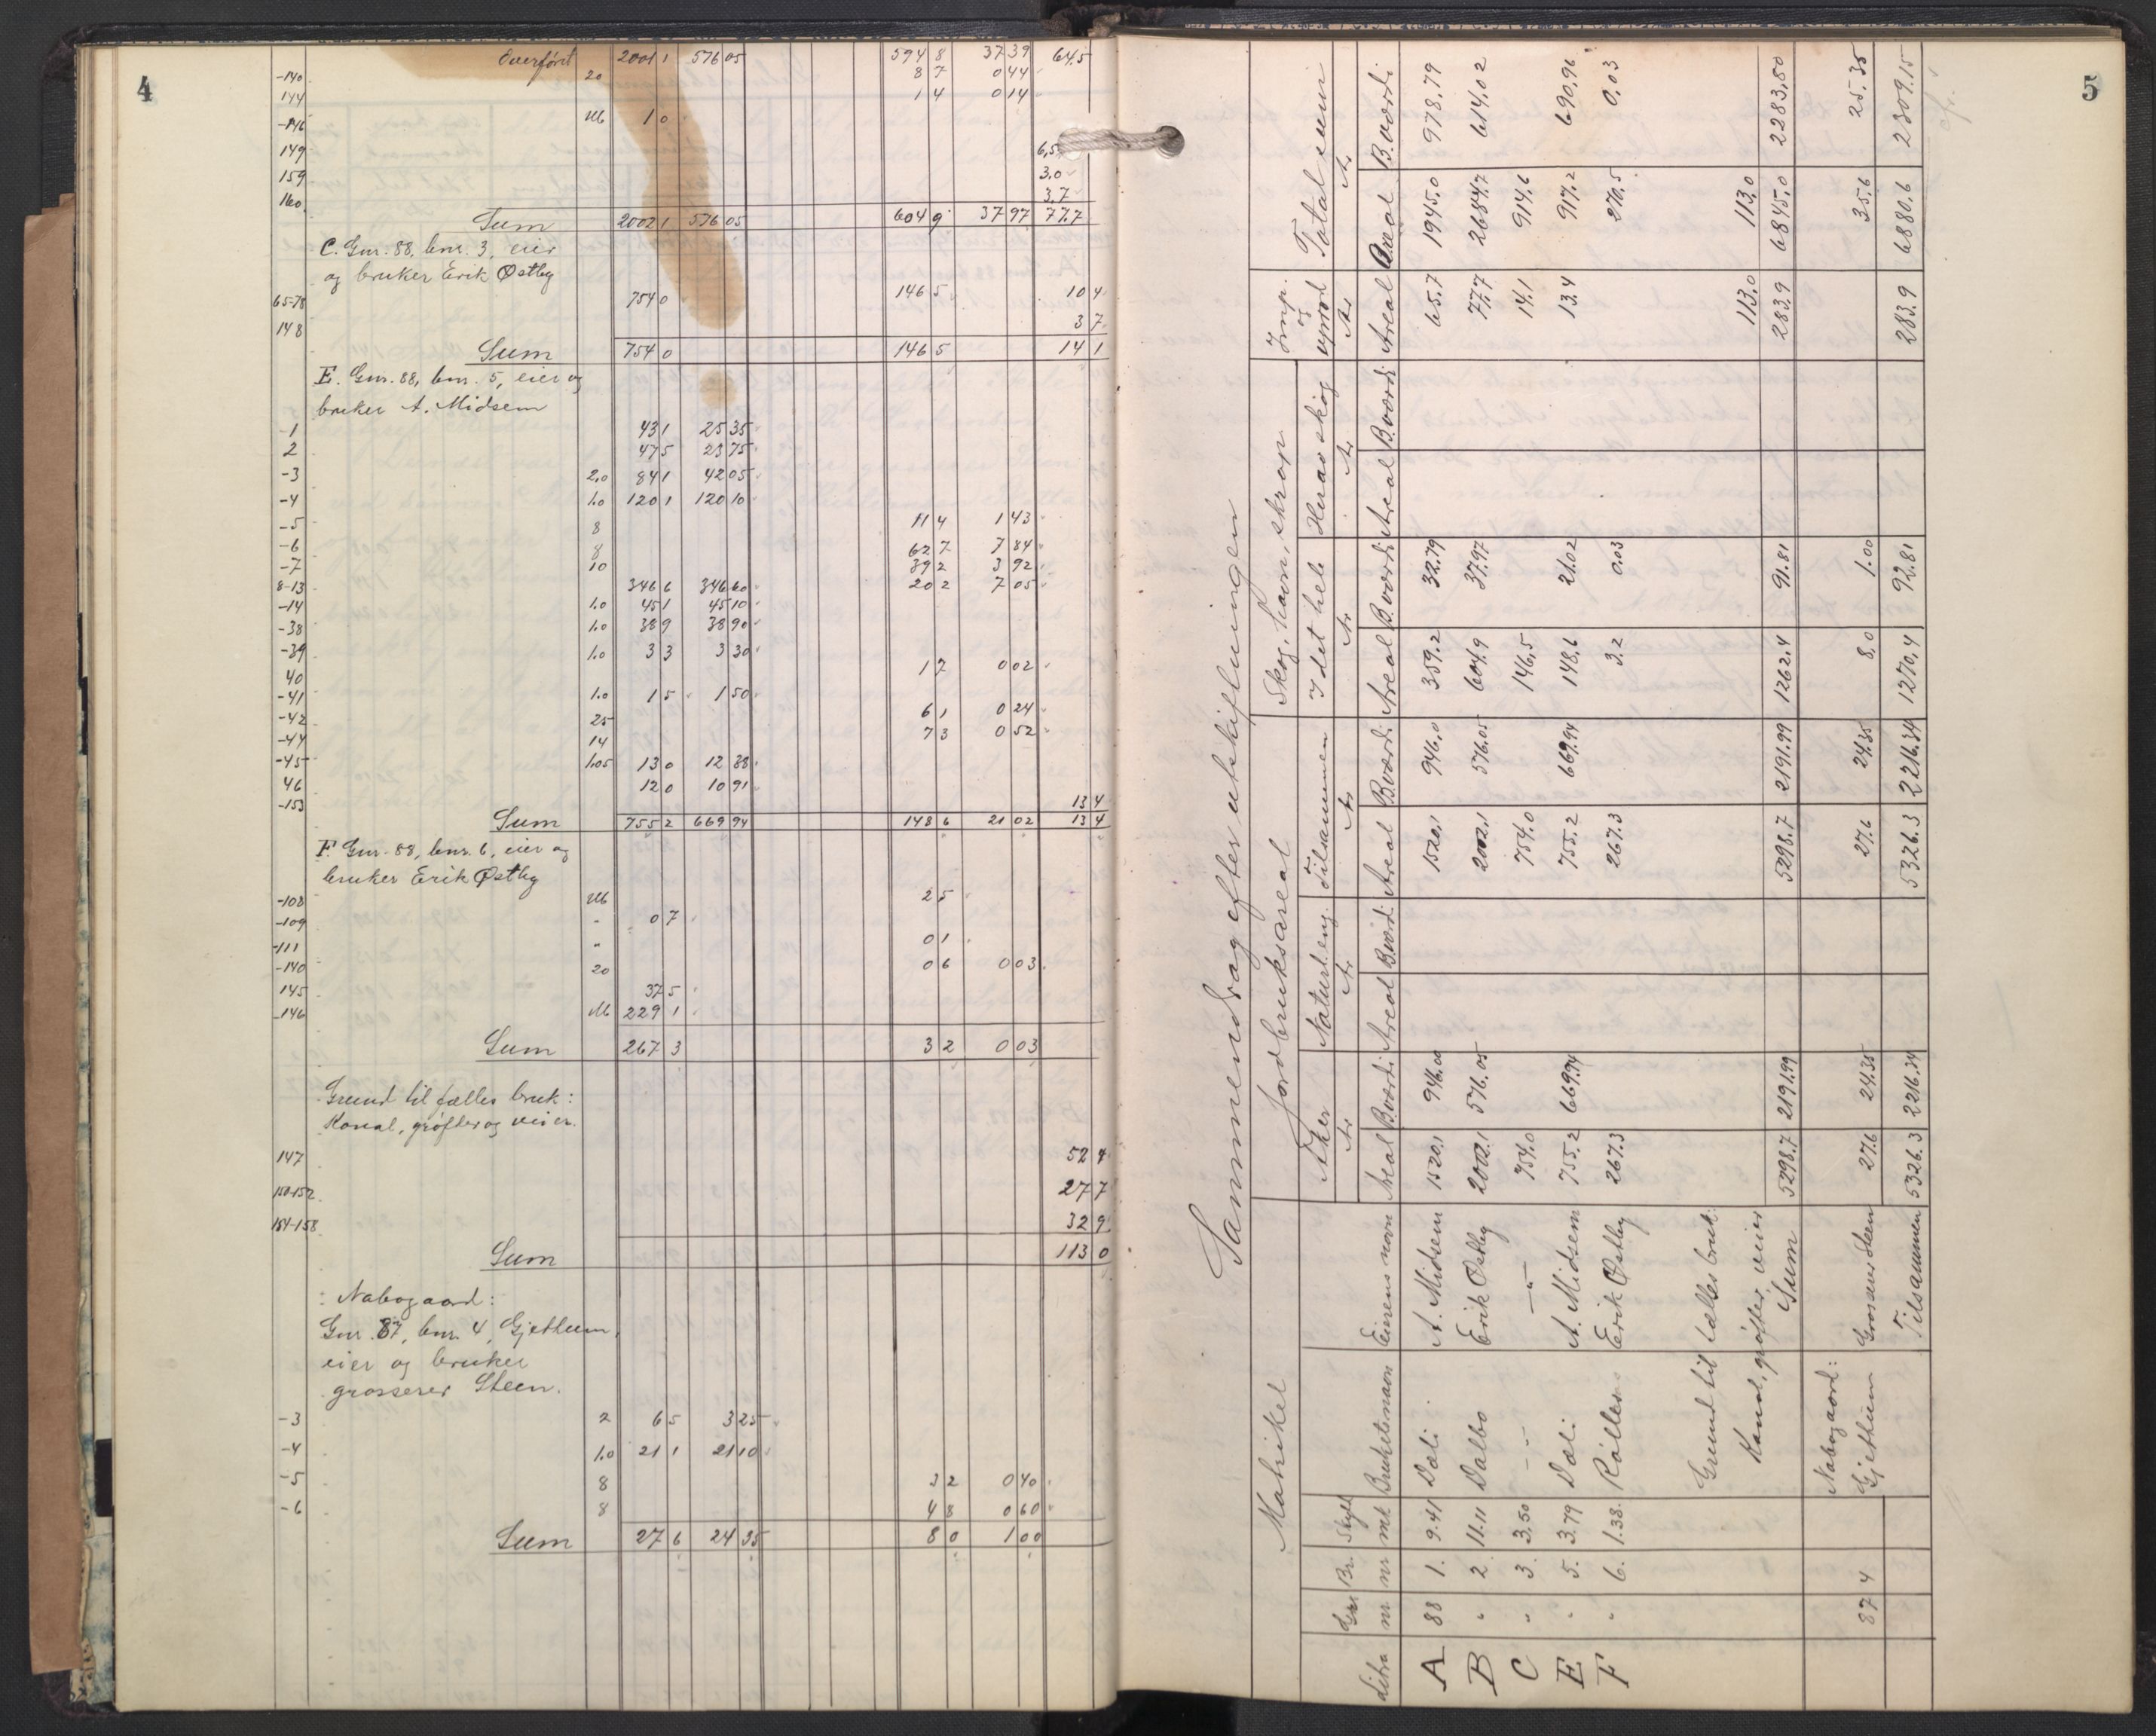 4
Overført 2001 1 576 05 594 8 37 39 64.5
-140 20 8 7 0 44
144 1 4 0 14
-146 Ub 1 0
149 6,5
159 3,0
160 3,7
Sum 2002 1 576 05 604 9 37 97 77,7
C. Gnr. 88, bnr. 3, eier
og bruker Erik Østby
65-78 754 0 146 5 10 4
148 3 7
Sum 754 0 146 5 14 1
E. Gnr. 88, bnr. 5, eier og
bruker A. Midsem
-1 43 1 25 35
2 47 5 23 75
-3 2,0 84 1 42 05
-4 1.0 120 1 120 10
-5 8 11 4 1 43
-6 8 62 7 7 84
-7 10 39 2 3 92
8-13 346 6 346 60 20 2 7 05
-14 1.0 45 1 45 10
-38 1.0 38 9 38 90
-39 1.0 3 3 3 30
40 1 7 0 02
-41 1.0 1 5 1 50
-42 25 6 1 0 24
-44 14 7 3 0 52
-45 1.05 13 0 12 38
46 12 0 10 91
-153 13 4
Sum 755 2 669 94 148 6 21 02 13 4
F. Gnr. 88, bnr. 6, eier og
bruker Erik Østby
-108 Ub 2 5
-109 - 0 7
-111 " 0 1
-140 20 0 6 0 03
145 37 5
-146 Ub 229 1
Sum 267 3 3 2 0 03
Grund til fælles bruk:
Kanal, grøfter og veier.
147 52 4
150-152 27 7
154-158 32 9
Sum 113 0
: Nabogaard:
Gnr. 87, bnr. 4, Gjethum,
eier og bruker
grosserer Steen.
-3 2 6 5 3 25
-4 1.0 21 1 21 10
-5 8 3 2 0 40
-6 8 4 8 0 60
Sum 27 6 24 35 8 0 1 00
5
Sammendrag efter utskiftningen
Matrikel Jordbruksareal Skog, havn, skrap Imp. og Total sum
Aker Naturl. eng. Tilsammen I det hele Herav skog uprod
Ar Ar Ar Ar Ar Ar Ar
Litra Gnr nr Br. nr Skyld mk Bruketsnavn Eierens navn Areal B.værdi Areal B.værdi Areal B.værdi Areal B.værdi Areal B.værdi Areal Areal B.værdi
A 88 1. 9.41 Dæli A. Midsem 1520,1 946.00 1520,1 946,0 359.2 32.79 65.7 1945.0 978.79
B " 2 11.11 Dalbo Erik Østby 2002.1 576.05 2002,1 576.05 604.9 37.97 77.7 2684.7 614.02
C " 3. 3.50 - " - - " - 754.0 754.0 146,5 14.1 914.6
E " 5. 3.79 Dæli A. Midsem 755.2 669.94 755.2 669.94 148,6 21.02 13.4 917.2 690,96
F " 6. 1.38 Erik Østby 267.3 267.3 3.2 0.03 270,5 0.03
Grund til fælles bruk:
Kanal, grøfter, veier 113.0 113.0
Sum 5298.7 2191.99 5298.7 2191.99 1262.4 91.81 283.9 6845.0 2283,80
Nabogaard:
87 4 Gjethum Grosserer Steen 27.6 24.35 27.6 24.35 8,0 1.00 35.6 25.35
Tilsammen 5326.3 2216.34 5326.3 2216.34 1270,4 92.81 283.9 6880.6 2309.15